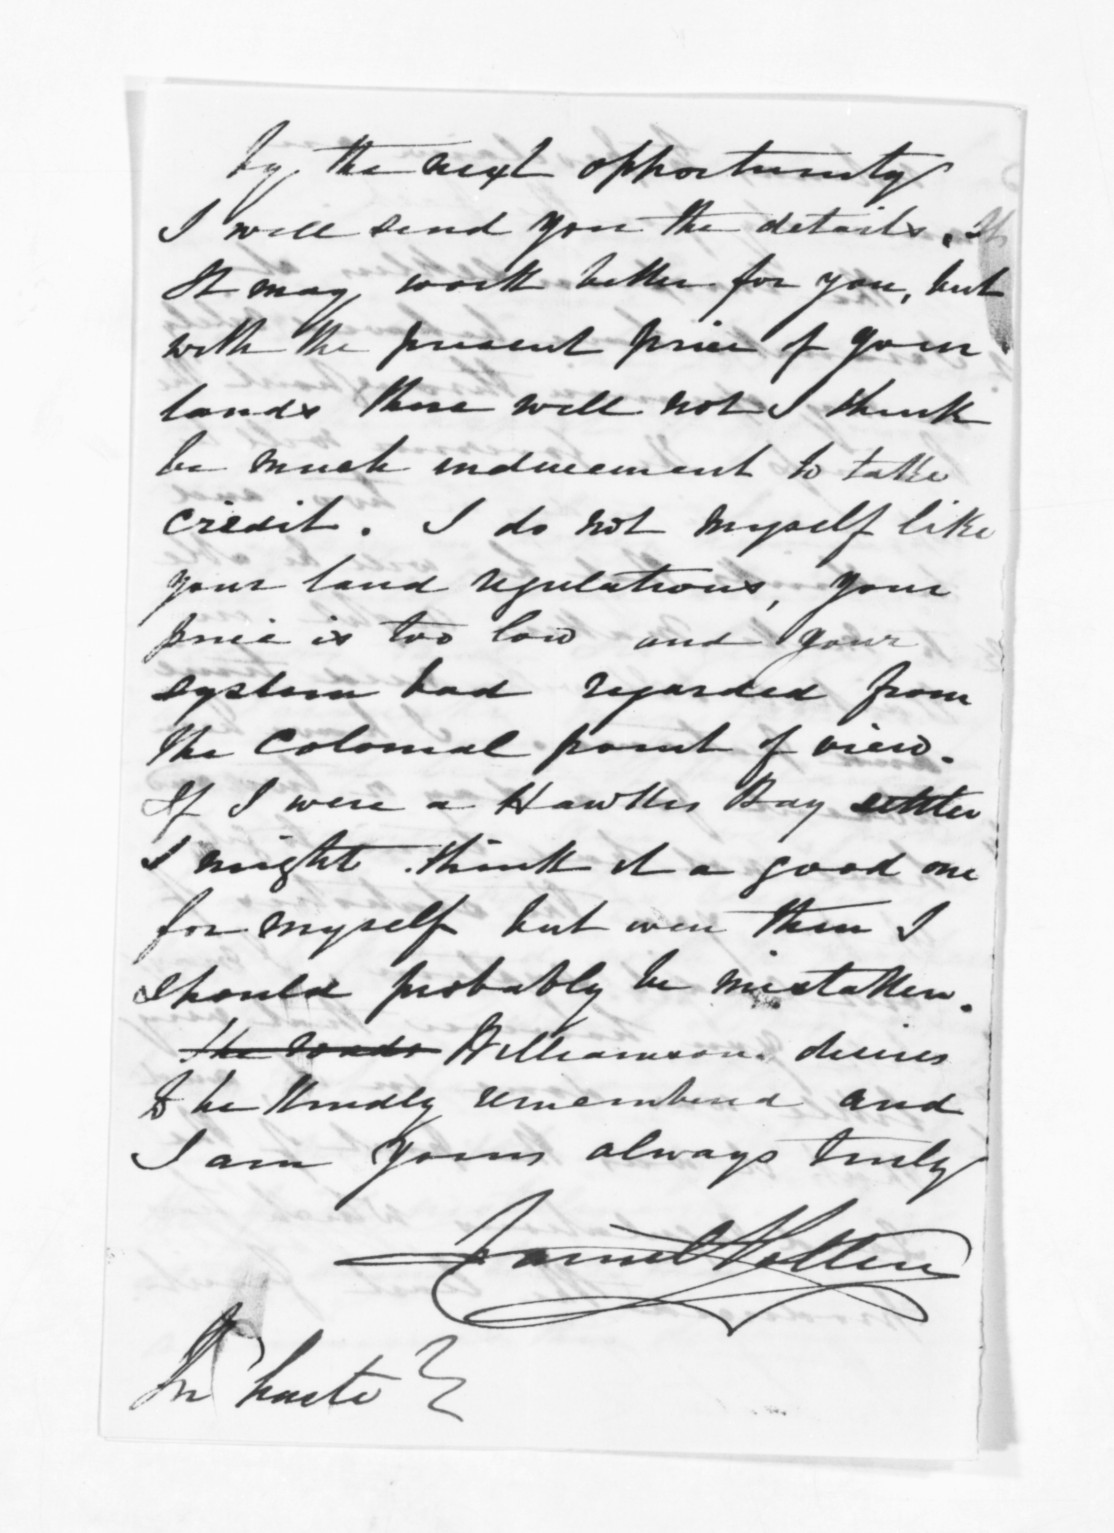 by the next opportunity
I will send you the details. It
It may work better for you, but
with the present price of your
lands there will not I think
be much inducement to take
credit. I do not myself like
your land regulations, your
price is too low and your
system bad regarded from
the Colonial point of view.
If I were a Hawkes Bay settler
I might think it a good one
for myself but even then I
should probably be mistaken.
the roads Williamson desires
to be kindly remembered and
I am yours always truly
In haste